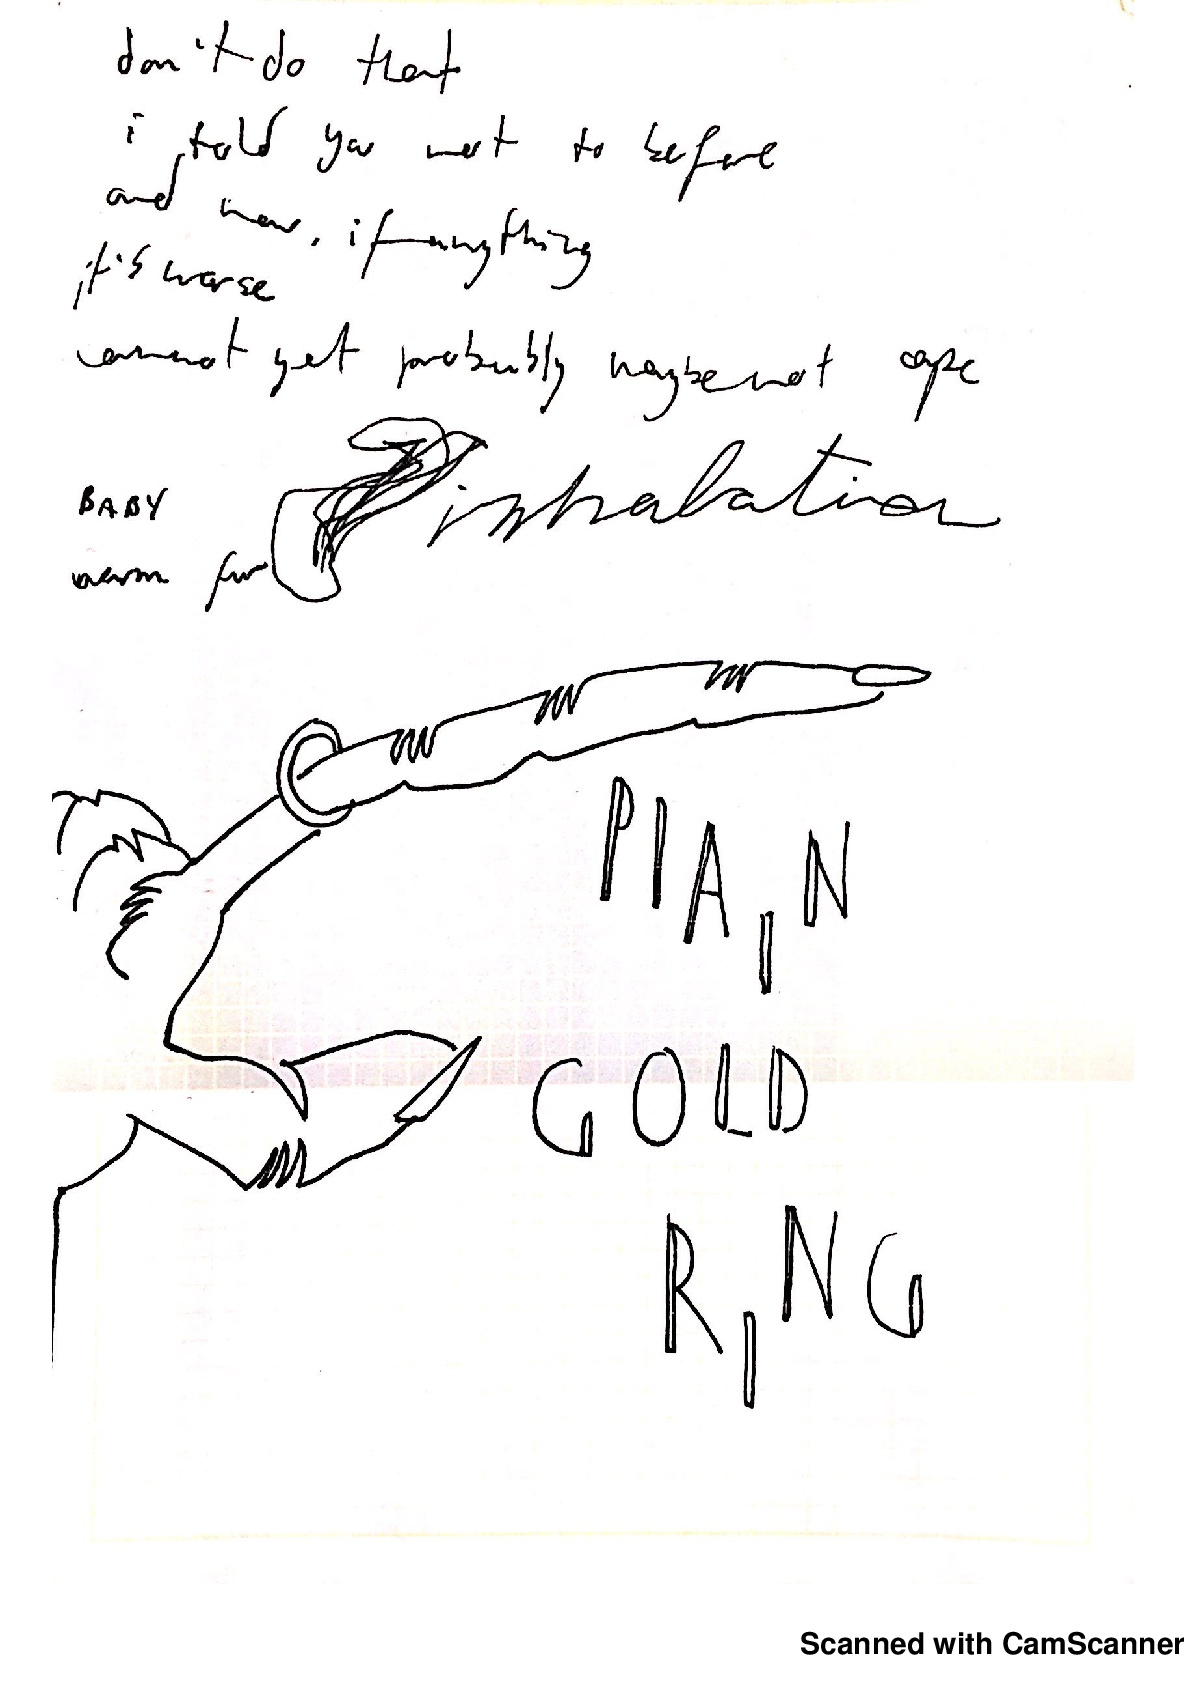 don't do that
i told you not to before
and now, if anything
it's worse
cannot yet probably maybe not cope
inhalation
BABY
warm fur
PLAIN
GOLD
RING
Scanned with CamScanner